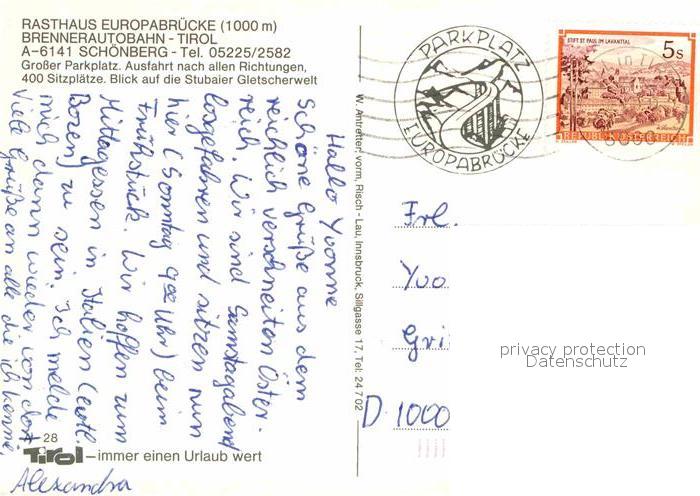 RASTHAUS EUROPABRÜCKE (1000 m)
BRENNERAUTOBAHN - TIROL
A-6141 SCHÖNBERG - Tel. 05225/2582
Großer Parkplatz. Ausfahrt nach allen Richtungen,
400 Sitzplätze. Blick auf die Stubaier Gletscherwelt
Hallo Yvonne
Schöne Grüße aus dem
reichlich verschneiten Öster-
reich. Wir sind Samstagabend
losgefahren und sitzen nun
hier (Sonntag 9⁰⁰ Uhr) beim
Frühstück. Wir hoffen zum
Mittagessen in Italien (evtl.
Bozen) zu sein. Ich melde
mich dann wieder von dort
Viele Grüße an alle die ich kenne
Alexandra
28
Tirol – immer einen Urlaub wert
W. Antretter, vorm. Risch - Lau, Innsbruck, Sillgasse 17, Tel. 24 7 02
PARKPLATZ
EUROPABRÜCKE
STIFT ST. PAUL IM LAVANTTAL
5s
REPUBLIK ÖSTERREICH
Frl.
Yvo
Gri
D 1000
privacy protection
Datenschutz